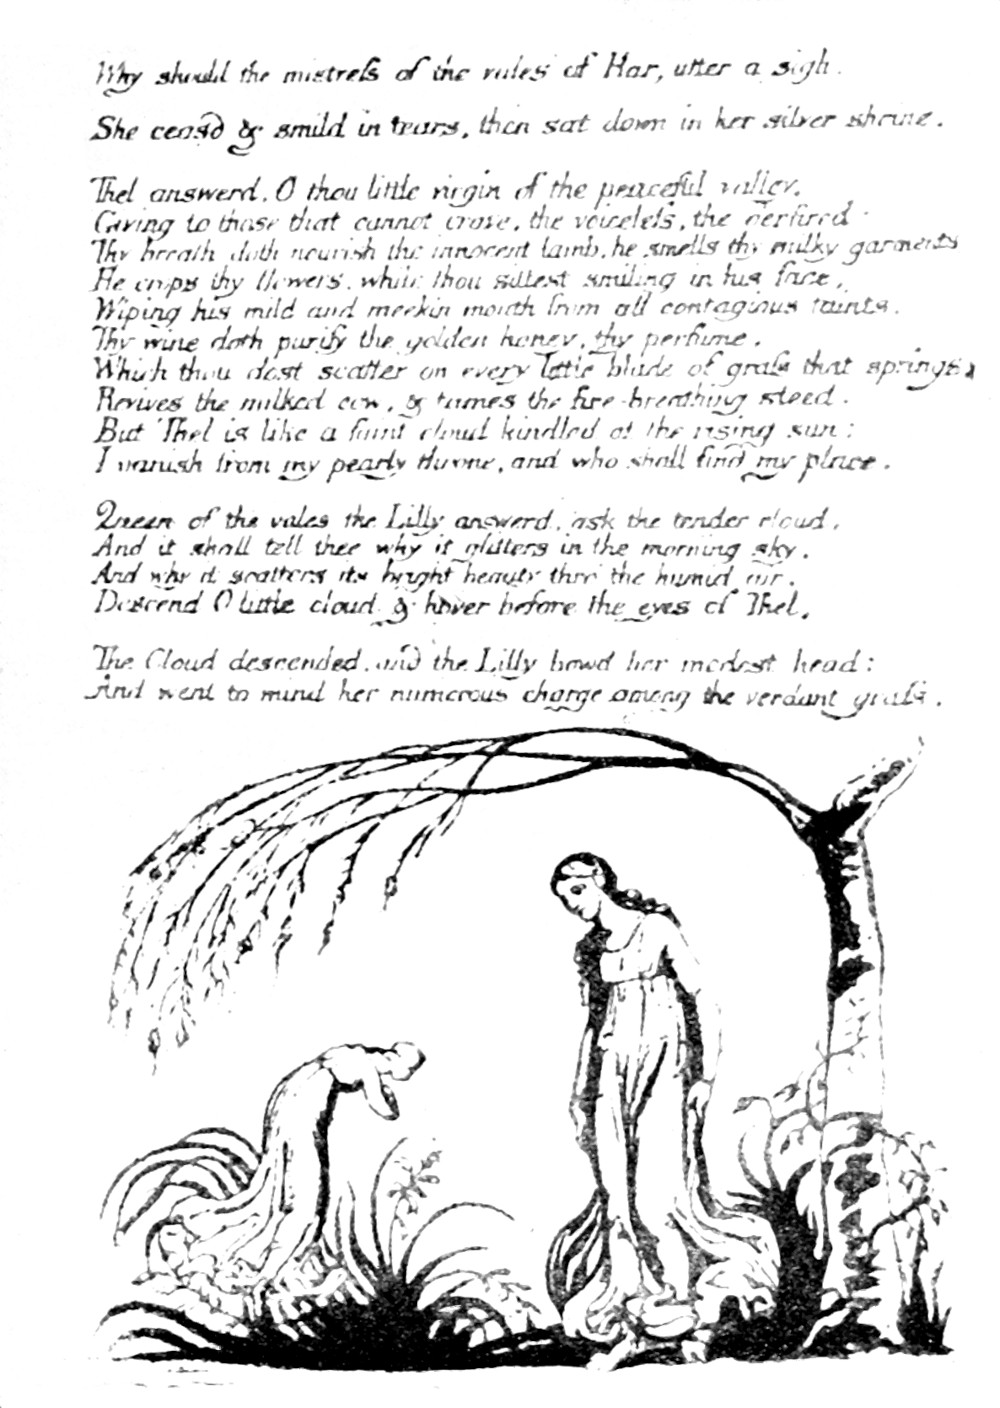 Why should the mistress of the vales of Har, utter a sigh.
She ceasd & smild in tears, then sat down in her silver shrine.
Thel answerd. O thou little virgin of the peaceful valley.
Giving to those that cannot crave, the voiceless, the oerfired
Thy breath doth nourish the innocent lamb, he smells thy milky garments
He crops thy flowers, while thou sittest smiling in his face,
Wiping his mild and meekin mouth from all contagious taints.
Thy wine doth purify the golden honey, thy perfume,
Which thou dost scatter on every little blade of grass that springs
Revives the milked cow, & tames the fire-breathing steed.
But Thel is like a faint cloud kindled at the rising sun:
I vanish from my pearly throne, and who shall find my place.
Queen of the vales the Lilly answerd, ask the tender cloud,
And it shall tell thee why it glitters in the morning sky,
And why it scatters its bright beauty thro' the humid air.
Descend O little cloud & hover before the eyes of Thel.
The Cloud descended, and the Lilly bowd her modest head:
And went to mind her numerous charge among the verdant grass.